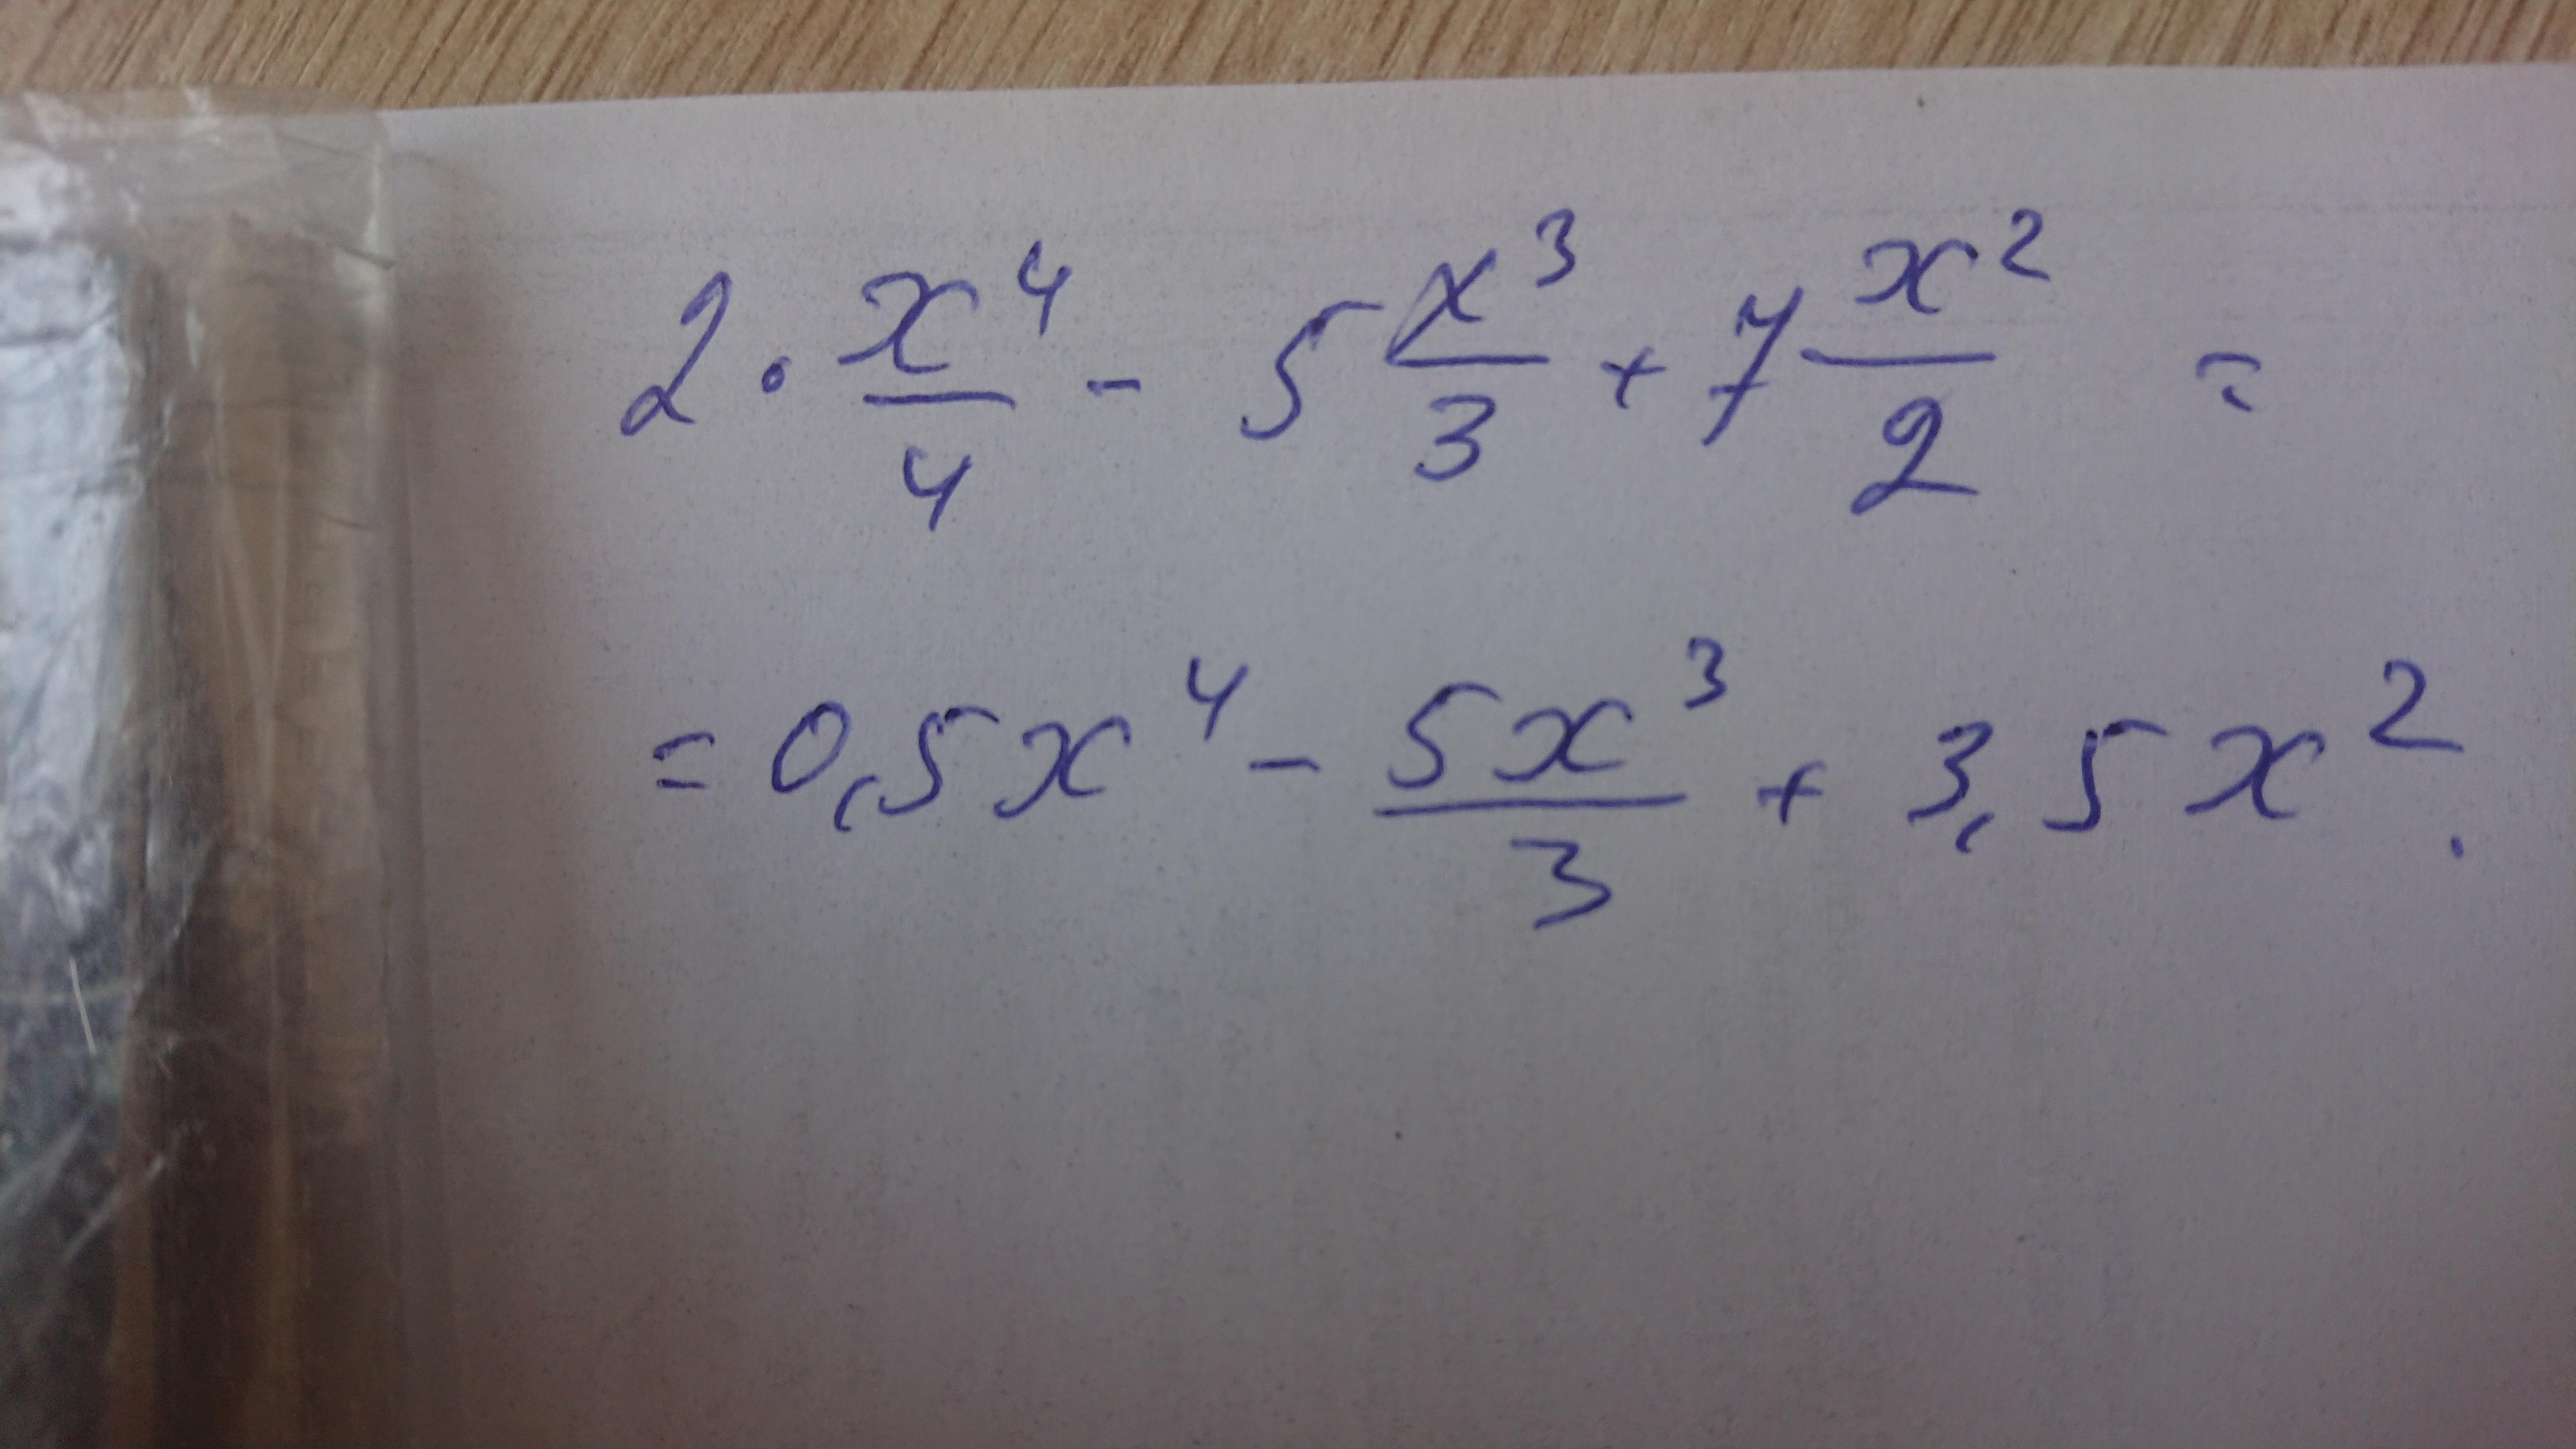 2 · x⁴/4 - 5 x³/3 + 7 x²/2 =
= 0,5x⁴ - 5x³/3 + 3,5x².